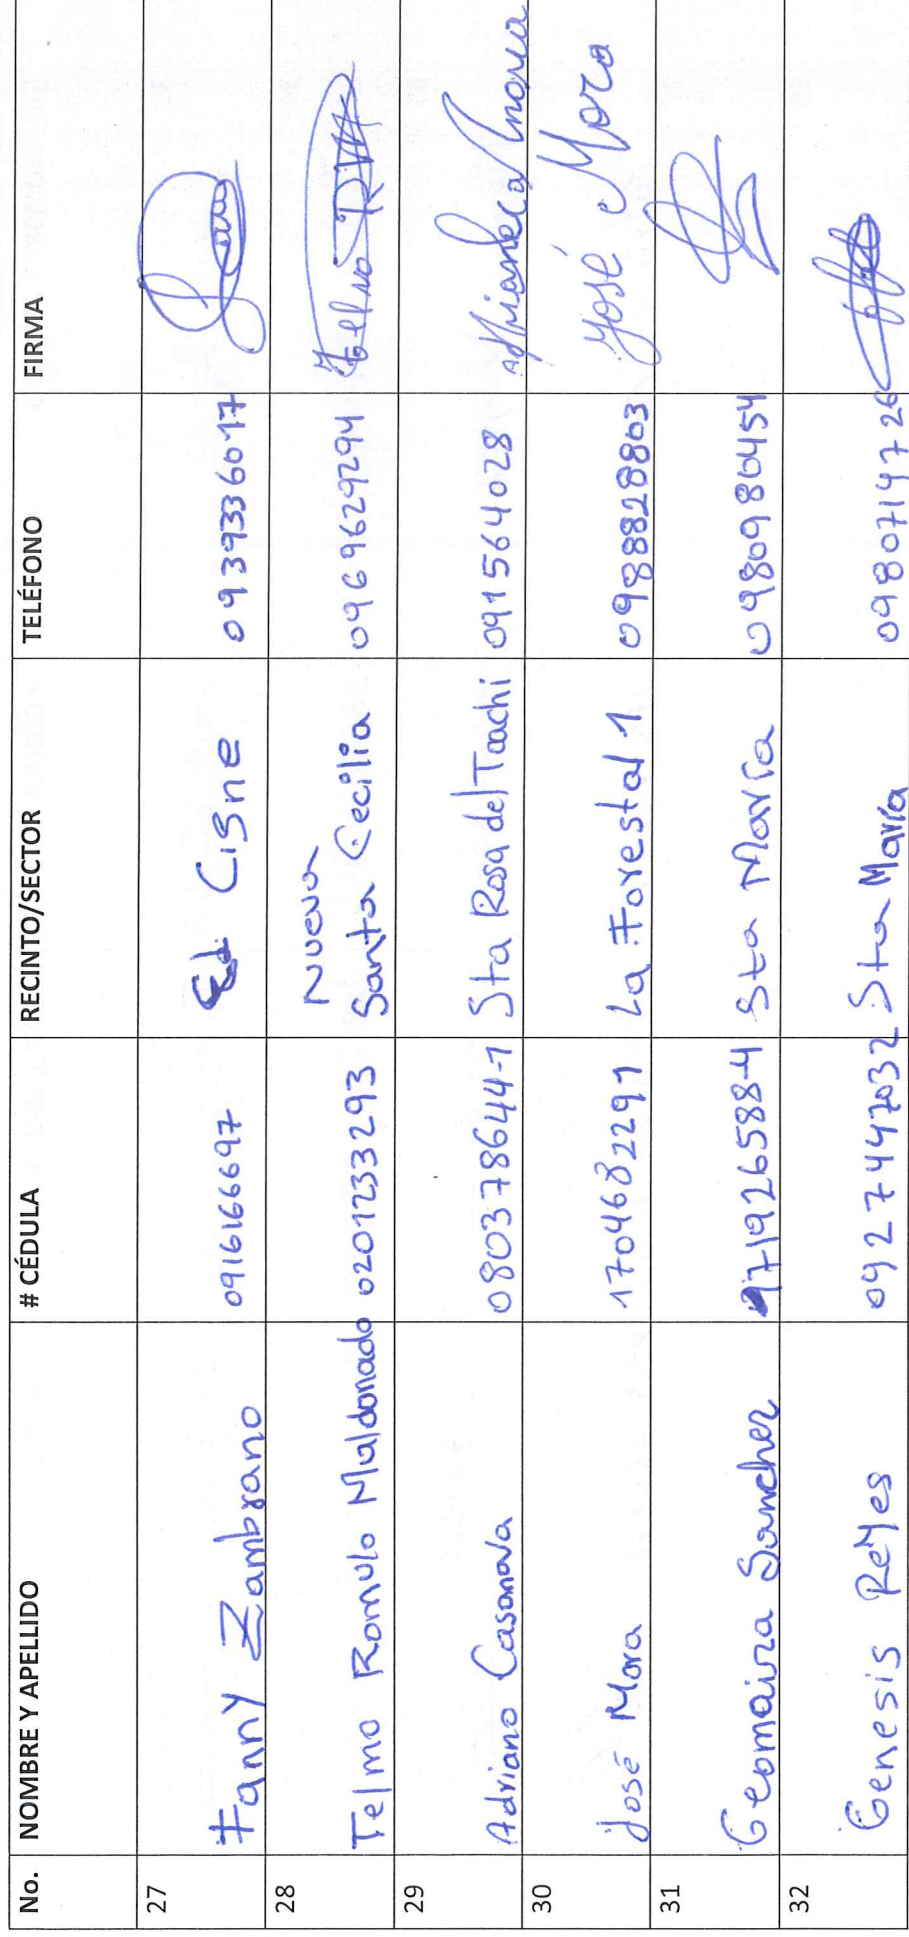 No. NOMBRE Y APELLIDO # CÉDULA RECINTO/SECTOR TELÉFONO FIRMA
27 Fanny Zambrano 0916166697 El Cisne 0939336017
28 Telmo Romulo Maldonado 0201233293 Nueva Santa Cecilia 0969629294 Telmo
29 Adriano Casanova 080378644-1 Sta Rosa del Toachi 0915564028
30 José Mora 1704682291 La Forestal 1 0988828803 José Mora
31 Geomaira Sanchez 171926588-4 Sta María 0980980454
32 Genesis Reyes 0927447032 Sta María 0980714726